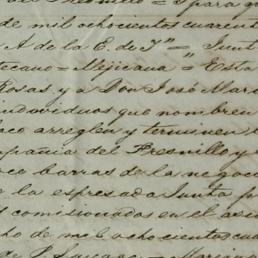 del Fresnillo = Para que
de mil ochocientos cuarent
A. de la E. de Tn = Junt
tecano = Mejicana = Esta
Rosas, y a Don José Mari
individuos que nombren
arreglen y terminen
pañia del Fresnillo y
co barras de la negoc
la espresada Junta p
comisionados en el
ho de mil ochocientos cua